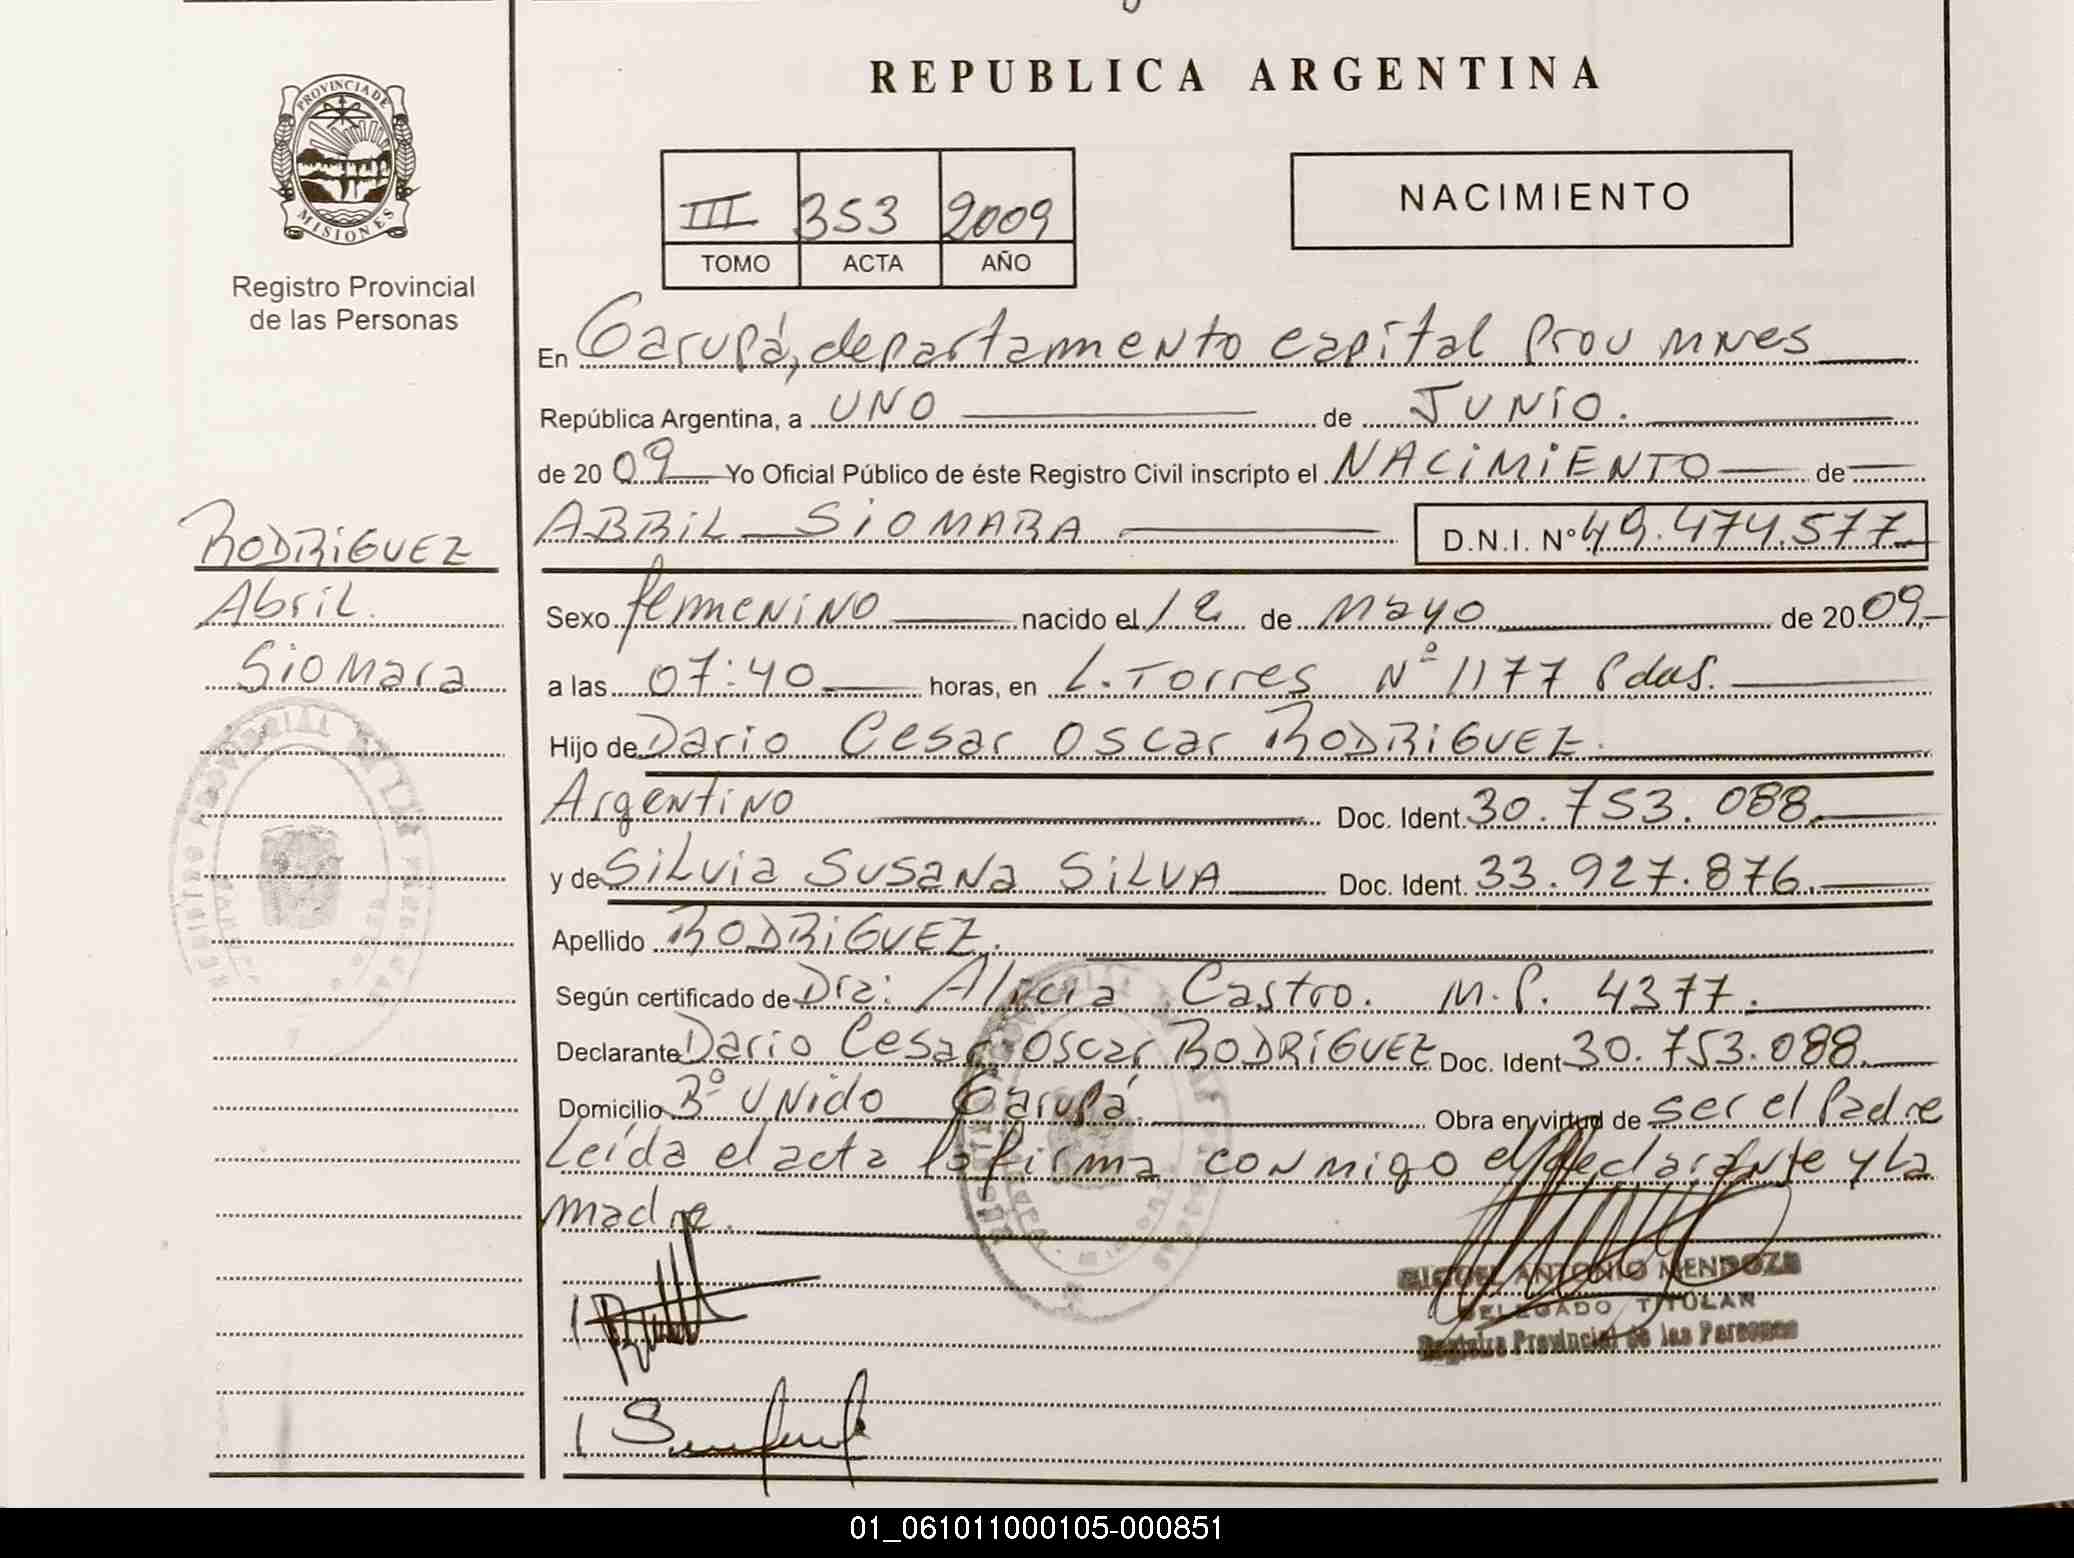 REPUBLICA ARGENTINA
PROVINCIA DE
MISIONES
Registro Provincial
de las Personas
III 353 2009
TOMO ACTA AÑO
NACIMIENTO
En Garupá, departamento capital Prov Mnes
República Argentina, a UNO de JUNIO.
de 2009 Yo Oficial Público de éste Registro Civil inscripto el NACIMIENTO de
RODRIGUEZ
Abril
Siomara
ABRIL SIOMARA D.N.I. N° 49.474.577
Sexo femenino nacido el 12 de mayo de 2009,
a las 07:40 horas, en L. Torres Nº 1177 Pdas.
Hijo de Dario Cesar Oscar RODRIGUEZ.
Argentino Doc. Ident. 30.753.088.
y de Silvia Susana SILVA Doc. Ident. 33.927.876.
Apellido RODRIGUEZ.
Según certificado de Dra: Alicia Castro. M.P. 4377.
Declarante Dario Cesar Oscar RODRIGUEZ Doc. Ident 30.753.088.
Domicilio Bº Unido Garupá. Obra en virtud de ser el Padre
Leída el acta la firma conmigo el declarante y la
madre.
MIGUEL ANTONIO MENDOZA
DELEGADO TITULAR
Registro Provincial de las Personas
01_061011000105-000851